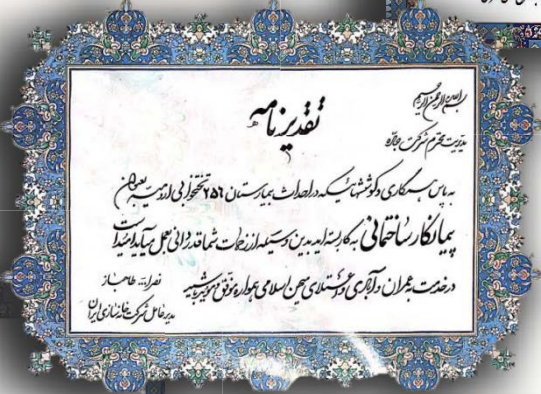 بسم الله الرحمن الرحیم
تقدیرنامه
مدیریت محترم شرکت
به پاس همکاری و کوششهائیکه در احداث بیمارستان ۲۵۶ تختخوابی ارومیه بعنوان
پیمانکار ساختمانی به کار بسته‌اید بدین وسیله از زحمات شما قدردانی بعمل میآید امید است
در خدمت به عمران و آبادی و اعتلای میهن اسلامی همواره موفق و مؤید باشید
نصرالله طاهباز
مدیر عامل شرکت خانه‌سازی ایران